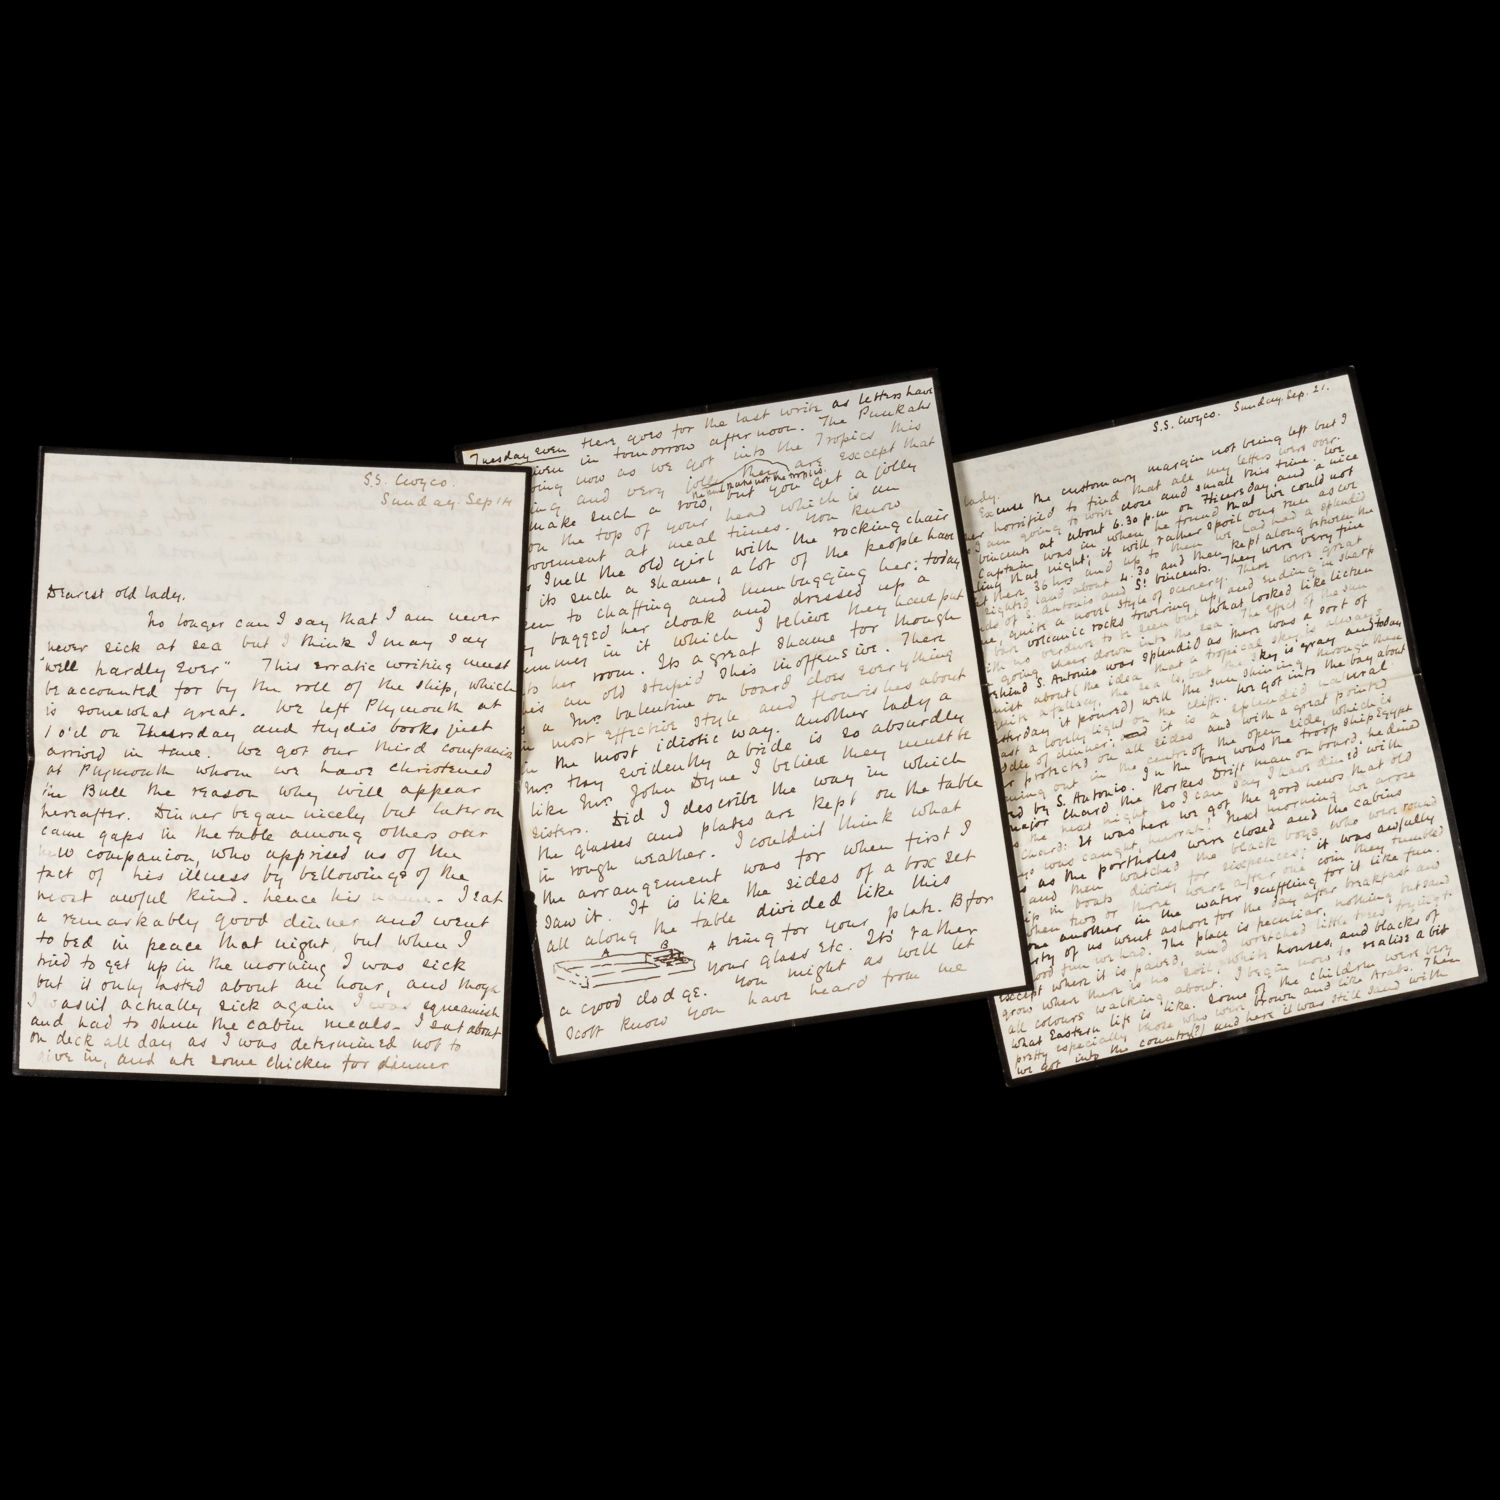 S.S.
Sunday. Sep 14
Dearest old lady.
No longer can I say that I am never
never sick at sea but I think I may say
"well hardly ever" This erratic writing must
be accounted for by the roll of the ship, which
is somewhat great. We left Plymouth at
1 o'cl on Thursday and books just
arrived in time. We got our third companion
at Plymouth whom we have christened
the Bull the reason why will appear
hereafter. Dinner began nicely but later on
came gaps in the table among others our
new companion, who apprised us of the
fact of his illness by bellowings of the
most awful kind. hence his name. I eat
a remarkably good dinner and went
to bed in peace that night, but when I
tried to get up in the morning I was sick
but it only lasted about an hour, and though
I wasn't actually sick again I was squeamish
and had to shun the cabin meals. I sat about
on deck all day as I was determined not to
give in, and ate some chicken for dinner
Tuesday even Here goes for the last write as letters have
given in tomorrow afternoon. The Punkahs
going now as we got into the Tropics this
and very jolly they are except that
the punkahs not the tropics
make such a row, but you get a jolly
on the top of your head which is an
improvement at meal times. You know
I tell the old girl with the rocking chair
its such a shame, a lot of the people have
been to chaffing and humbugging her: today
bagged her cloak and dressed up a
in it which I believe they have put
her room. Its a great shame for though
an old stupid she's inoffensive. There
a Mrs. Valentine on board does everything
in most effective style and flourishes about
in the most idiotic way. Another lady a
Mrs. Hay evidently a bride is so absurdly
like Mrs. John Dyne I believe they must be
sisters. Did I describe the way in which
the glasses and plates are kept on the table
in rough weather. I couldn't think what
the arrangement was for when first I
saw it. It is like the sides of a box set
all along the table divided like this
A B A being for your plate. B for
your glass etc. Its rather
a good dodge. You might as well let
Scott know you have heard from me
S.S. Sunday. Sep. 21.
lady.
Excuse the customary margin not being left but I
horrified to find that all my letters were over.
I am going to write close and small this time. We
Vincents at about 6.30 p.m on Thursday, and a nice
Captain was in when he found that we could not
that night; it will rather spoil our run as we
36 hrs and up to then we had had a splendid
sighted land about 4.30 and then kept along between the
S. Antonio and St. Vincents. They were very fine
quite a novel style of scenery. There were great
volcanic rocks towering up, and ending in sharp
with no verdure to be seen but what looked like lichen
going sheer down into the sea. The effect of the sun
behind S. Antonio was splendid as there was a sort of
mist about (the idea that a tropical sky is always
quite a fallacy, the sea is, but the sky is gray and today
it poured) well the sun shining through these
cast a lovely light on the cliffs. We got into the bay about
middle of dinner: and it is a splendid natural
protected on all sides and with a great pointed
out in the centre of the open side, which is
by S. Antonio. In the bay was the troop ship Egypt
major Chard the Rorkes Drift man on board. he dined
the next night so I can say I have dined with
Chard: It was here we got the good news that old
was caught, hurrah! Next morning we arose
as the portholes were closed and the cabins
and then watched the black boys who were round
ship in boats diving for sixpences; it was awfully
when two or three were after one coin they tumbled
one another in the water scuffling for it like fun.
party of us went ashore for the day after breakfast and
good fun we had. The place is peculiar, nothing but sand
except where it is paved, and wretched little trees trying to
grow where there is no soil, white houses, and blacks of
all colours walking about. I begin now to realise a bit
what Eastern life is like. Some of the children were very
pretty especially those who were brown and like Arabs. Then
we got into the country(?) and here it was still sand with